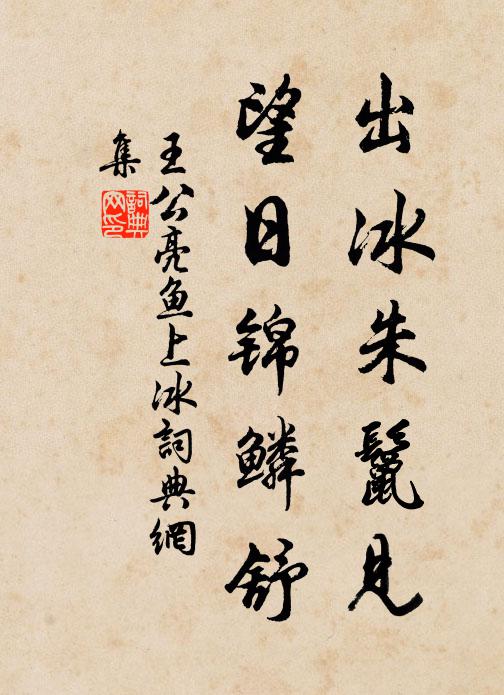 出冰朱鬣見
望日锦鳞舒
王公亮鱼上冰詞典網
集
詞典網印